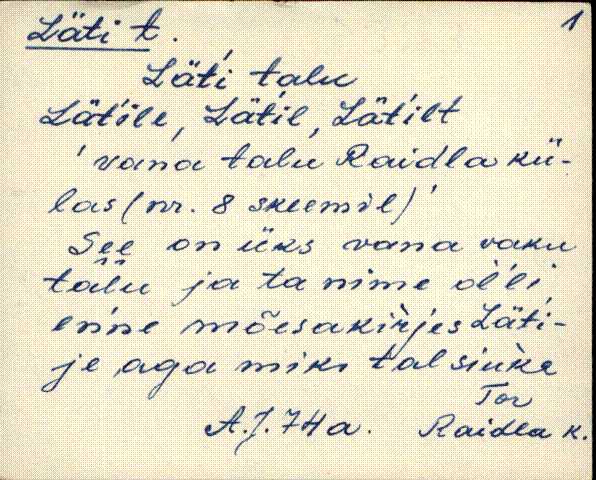 Läti t. 1
Lät́i talu
Lät́ile, Lät́il, Lät́ilt
'vana talu Raidla kü-
las (nr. 8 skeemil)'
See on üks vana vaku
talu ja ta nime ol'li
en'ne mõesakir̀jes Läti-
je, aga miks tal siuke
Tor
A. J. 74 a. Raidla k.